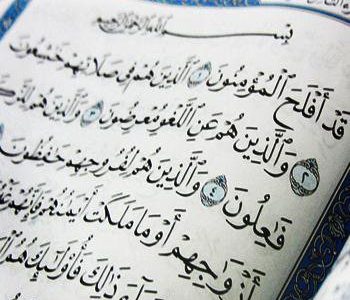 بِسْمِ ٱللَّهِ ٱلرَّحْمَٰنِ ٱلرَّحِيمِ
قَدْ أَفْلَحَ ٱلْمُؤْمِنُونَ ١ ٱلَّذِينَ هُمْ فِى صَلَاتِهِمْ خَٰشِعُونَ
٢ وَٱلَّذِينَ هُمْ عَنِ ٱللَّغْوِ مُعْرِضُونَ ٣ وَٱلَّذِينَ هُمْ
فَٰعِلُونَ ٤ وَٱلَّذِينَ هُمْ لِفُرُوجِهِمْ حَٰفِظُونَ
أَزْوَٰجِهِمْ أَوْ مَا مَلَكَتْ أَيْمَٰنُهُمْ فَإِنَّهُمْ
ذَٰلِكَ فَأُو۟لَٰٓئِكَ هُمُ